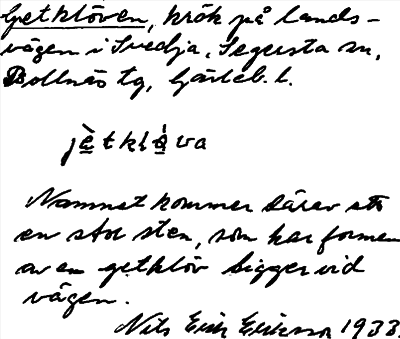 Getklöven, krök på lands-
vägen i Svedja, Segersta sn,
Bollnäs tg, Gävleb. l.
jètklöva
Namnet kommer därav att
en stor sten, som har formen
av en getklöv ligger vid
vägen.
Nils Erik Eriksson 1933.